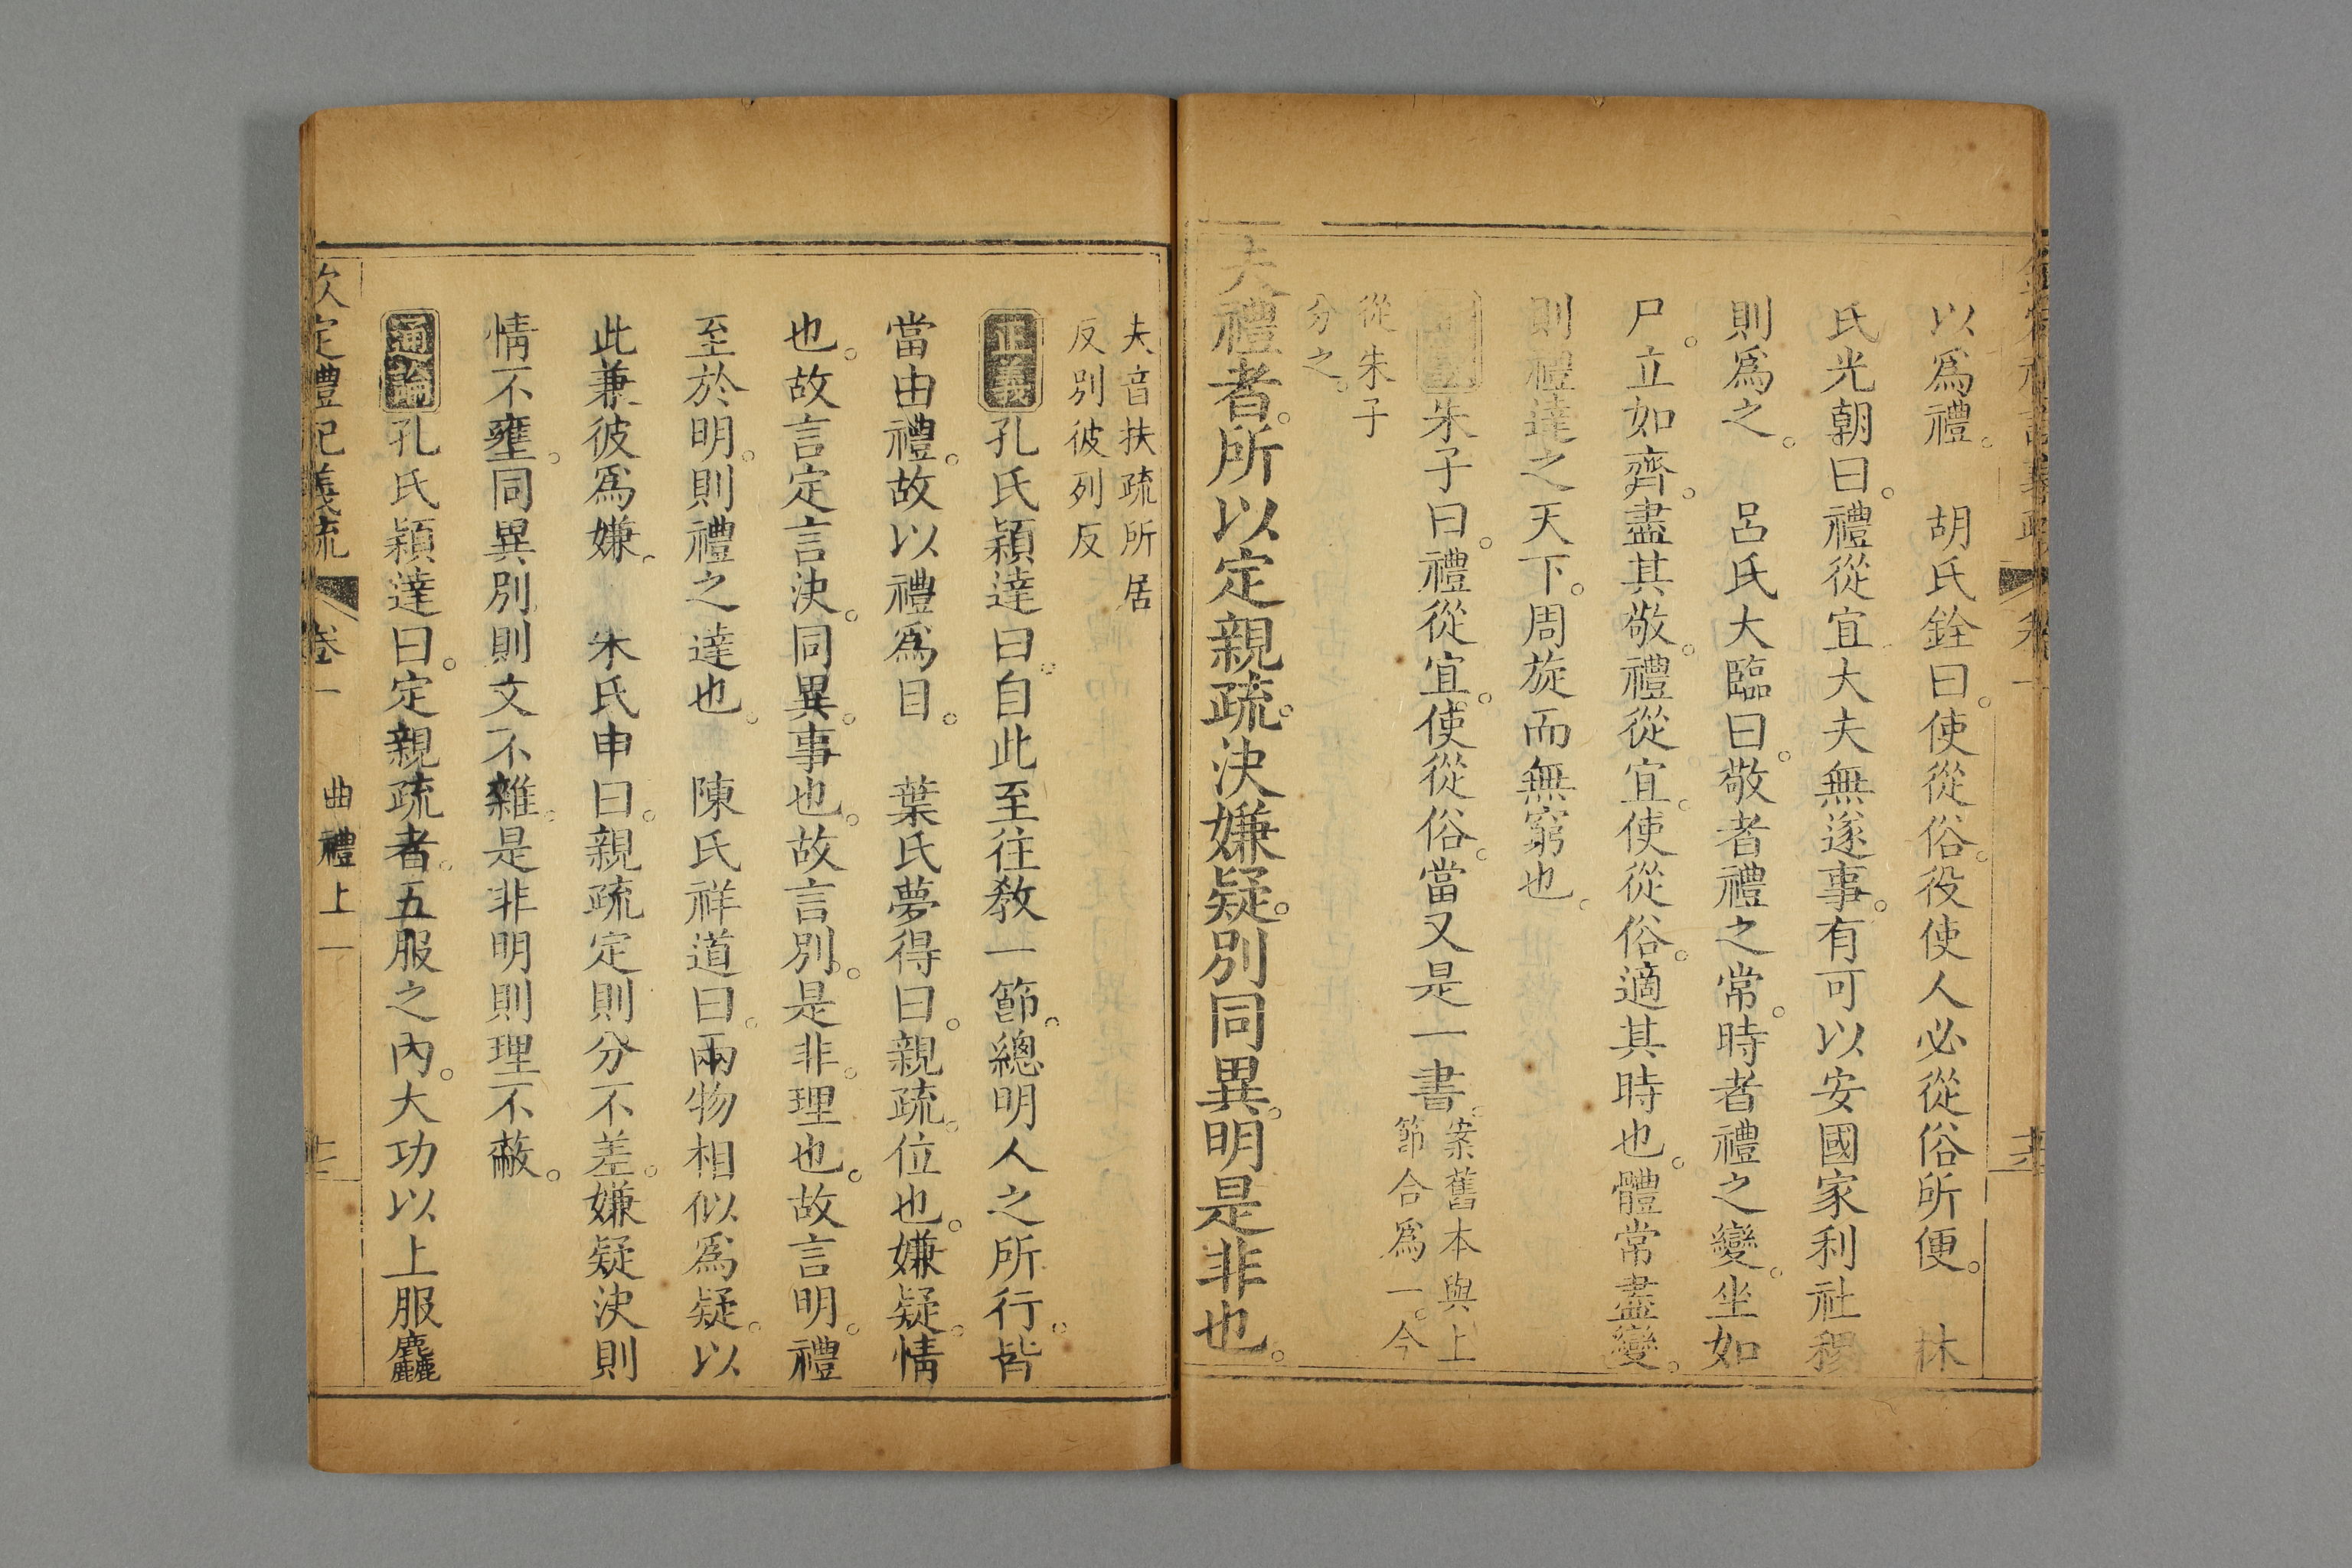 以爲禮。　胡氏銓曰。使從俗。役使人必從俗所便。　林
氏光朝曰。禮從宜。大夫無遂事。有可以安國家利社稷
則爲之。　呂氏大臨曰。敬者禮之常。時者禮之變。坐如
尸。立如齊。盡其敬。禮從宜。使從俗。適其時也。體常盡變。
則禮達之天下。周旋而無窮也。
朱子曰。禮從宜。使從俗。當又是一書。案舊本與上
節合爲一。今
從朱子
分之。
夫禮者。所以定親疏。決嫌疑。別同異。明是非也。
夫音扶疏所居
反別彼列反
正義孔氏穎達曰。自此至往教一節。總明人之所行。皆
當由禮。故以禮爲目。　葉氏夢得曰。親疏。位也。嫌疑。情
也。故言定言決。同異。事也。故言別。是非。理也。故言明。禮
至於明。則禮之達也。　陳氏祥道曰。兩物相似爲疑。以
此兼彼爲嫌。　朱氏申曰。親疏定則分不差。嫌疑決則
情不壅。同異別則文不雜。是非明則理不蔽。
通論孔氏穎達曰。定親疏者。五服之內。大功以上服麤
欽定禮記義疏　卷一　曲禮上一